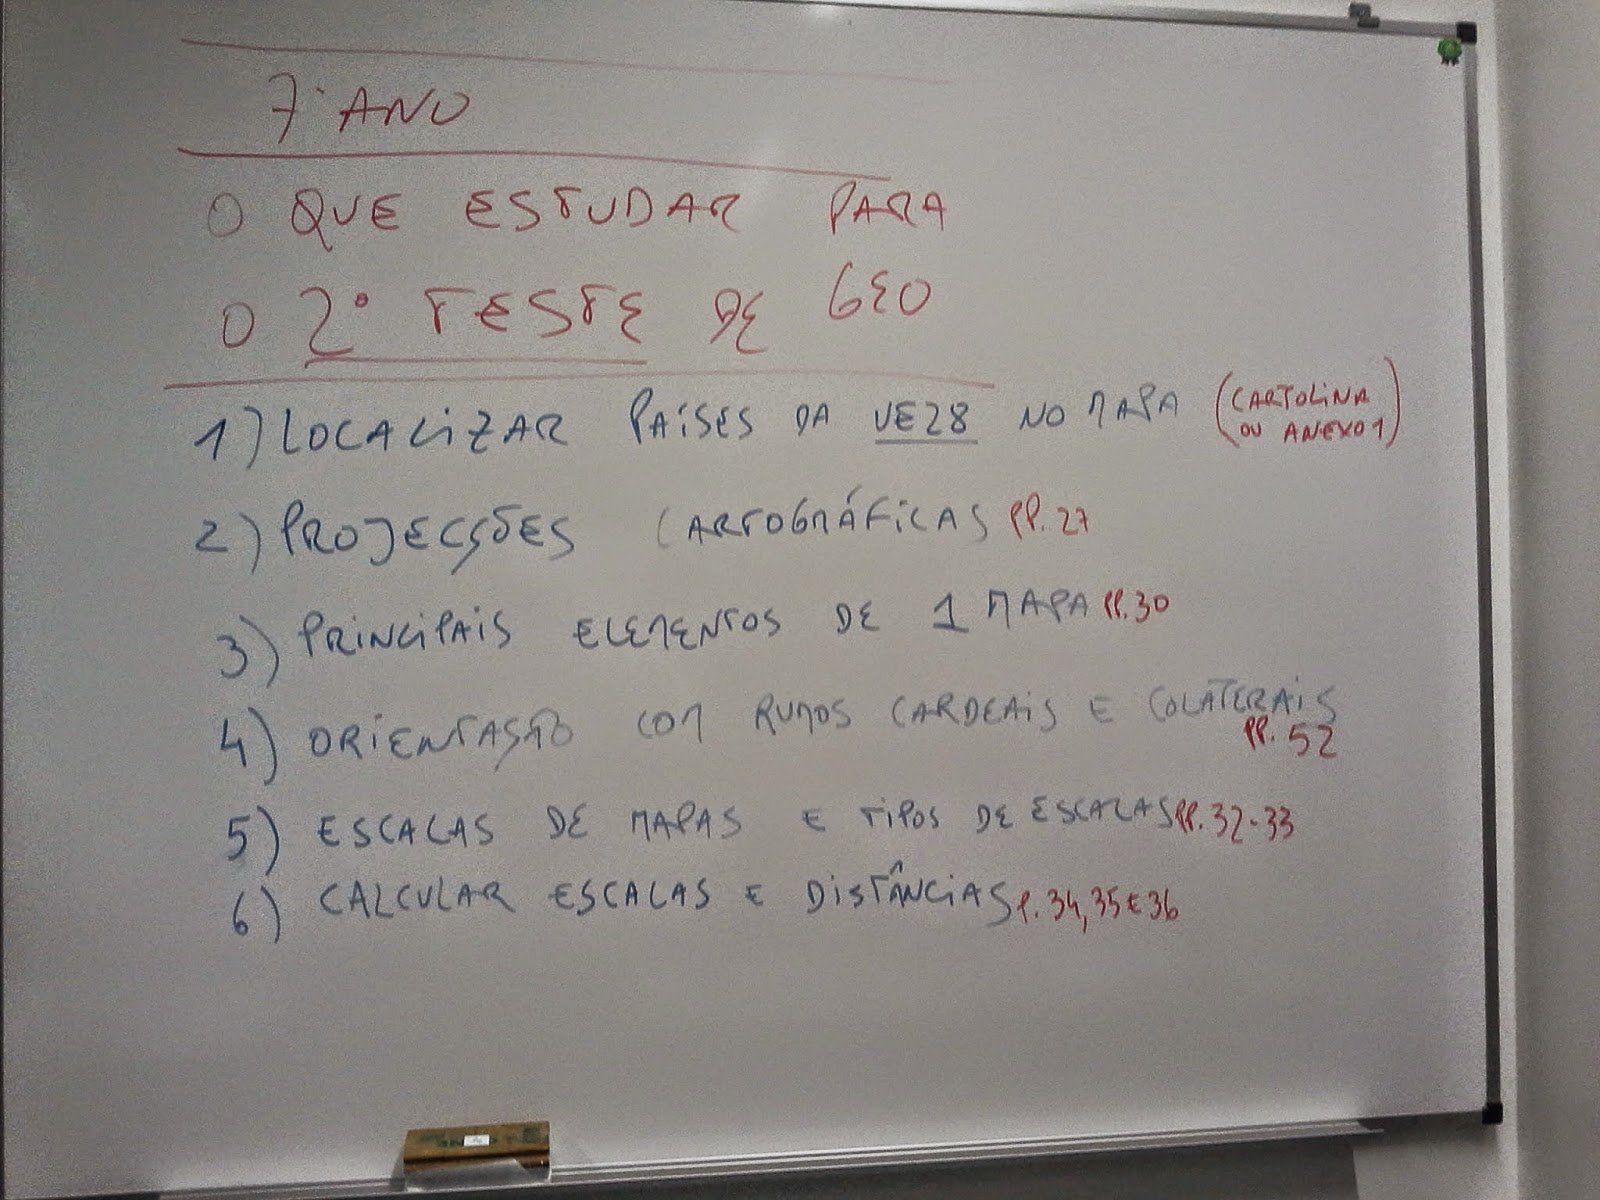 7º ANO
O QUE ESTUDAR PARA
O 2º TESTE DE GEO
1) LOCALIZAR PAÍSES DA UE28 NO MAPA (CARTOLINA
OU ANEXO 1)
2) PROJECÇÕES CARTOGRÁFICAS PP. 27
3) PRINCIPAIS ELEMENTOS DE 1 MAPA PP. 30
4) ORIENTAÇÃO COM RUMOS CARDEAIS E COLATERAIS
PP. 52
5) ESCALAS DE MAPAS E TIPOS DE ESCALAS PP. 32-33
6) CALCULAR ESCALAS E DISTÂNCIAS P. 34, 35 E 36